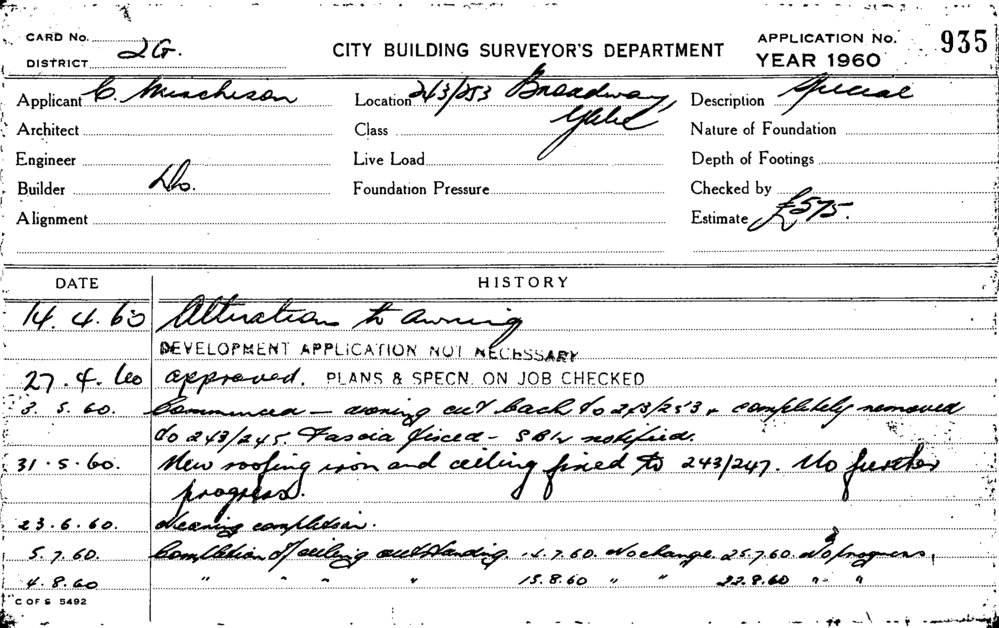 CARD No.
DISTRICT 2G.
CITY BUILDING SURVEYOR'S DEPARTMENT
APPLICATION No. 935
YEAR 1960
Applicant C. Murchison
Location 243/253 Broadway,
Glebe
Description Special
Architect
Class
Nature of Foundation
Engineer
Live Load
Depth of Footings
Builder Do.
Foundation Pressure
Checked by
Alignment
Estimate £575.
DATE HISTORY
14.4.60 Alterations to awning
DEVELOPMENT APPLICATION NOT NECESSARY
27.4.60 approved. PLANS & SPECN. ON JOB CHECKED
3.5.60. Commenced – awning cut back to 243/253 & completely removed
to 243/245. Fascia fixed – notified.
31.5.60. New roofing iron and ceiling fixed to 243/247. No further
progress.
23.6.60. Nearing completion.
5.7.60. Completion of ceiling outstanding. 14.7.60. No change. 25.7.60. No progress.
4.8.60 " " " " 15.8.60 " " 22.8.60 " "
C OF S 5492